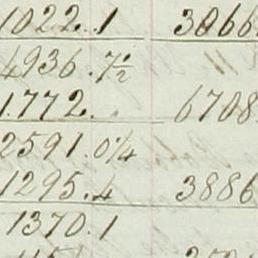 1022..1 3066
4936.7½
1.772. 6708
2591.0¼
1295.4 3886
1370.1